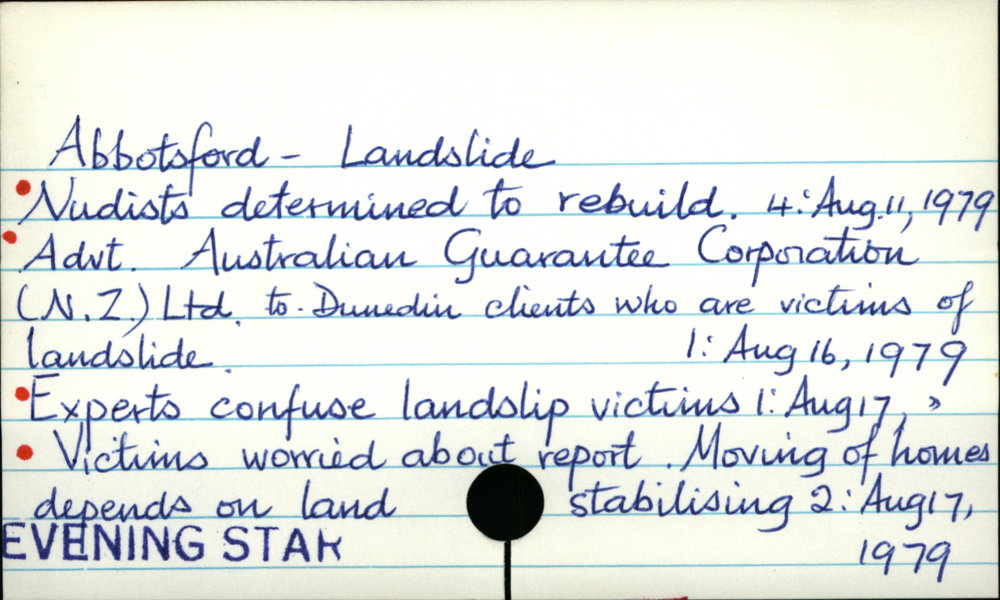 Abbotsford - Landslide
Nudists determined to rebuild. 4: Aug. 11, 1979
Advt. Australian Guarantee Corporation
(N.Z.) Ltd. to Dunedin clients who are victims of
landslide. 1: Aug 16, 1979
Experts confuse landslip victims 1: Aug 17, "
Victims worried about report. Moving of homes
depends on land stabilising 2: Aug 17,
1979
EVENING STAR